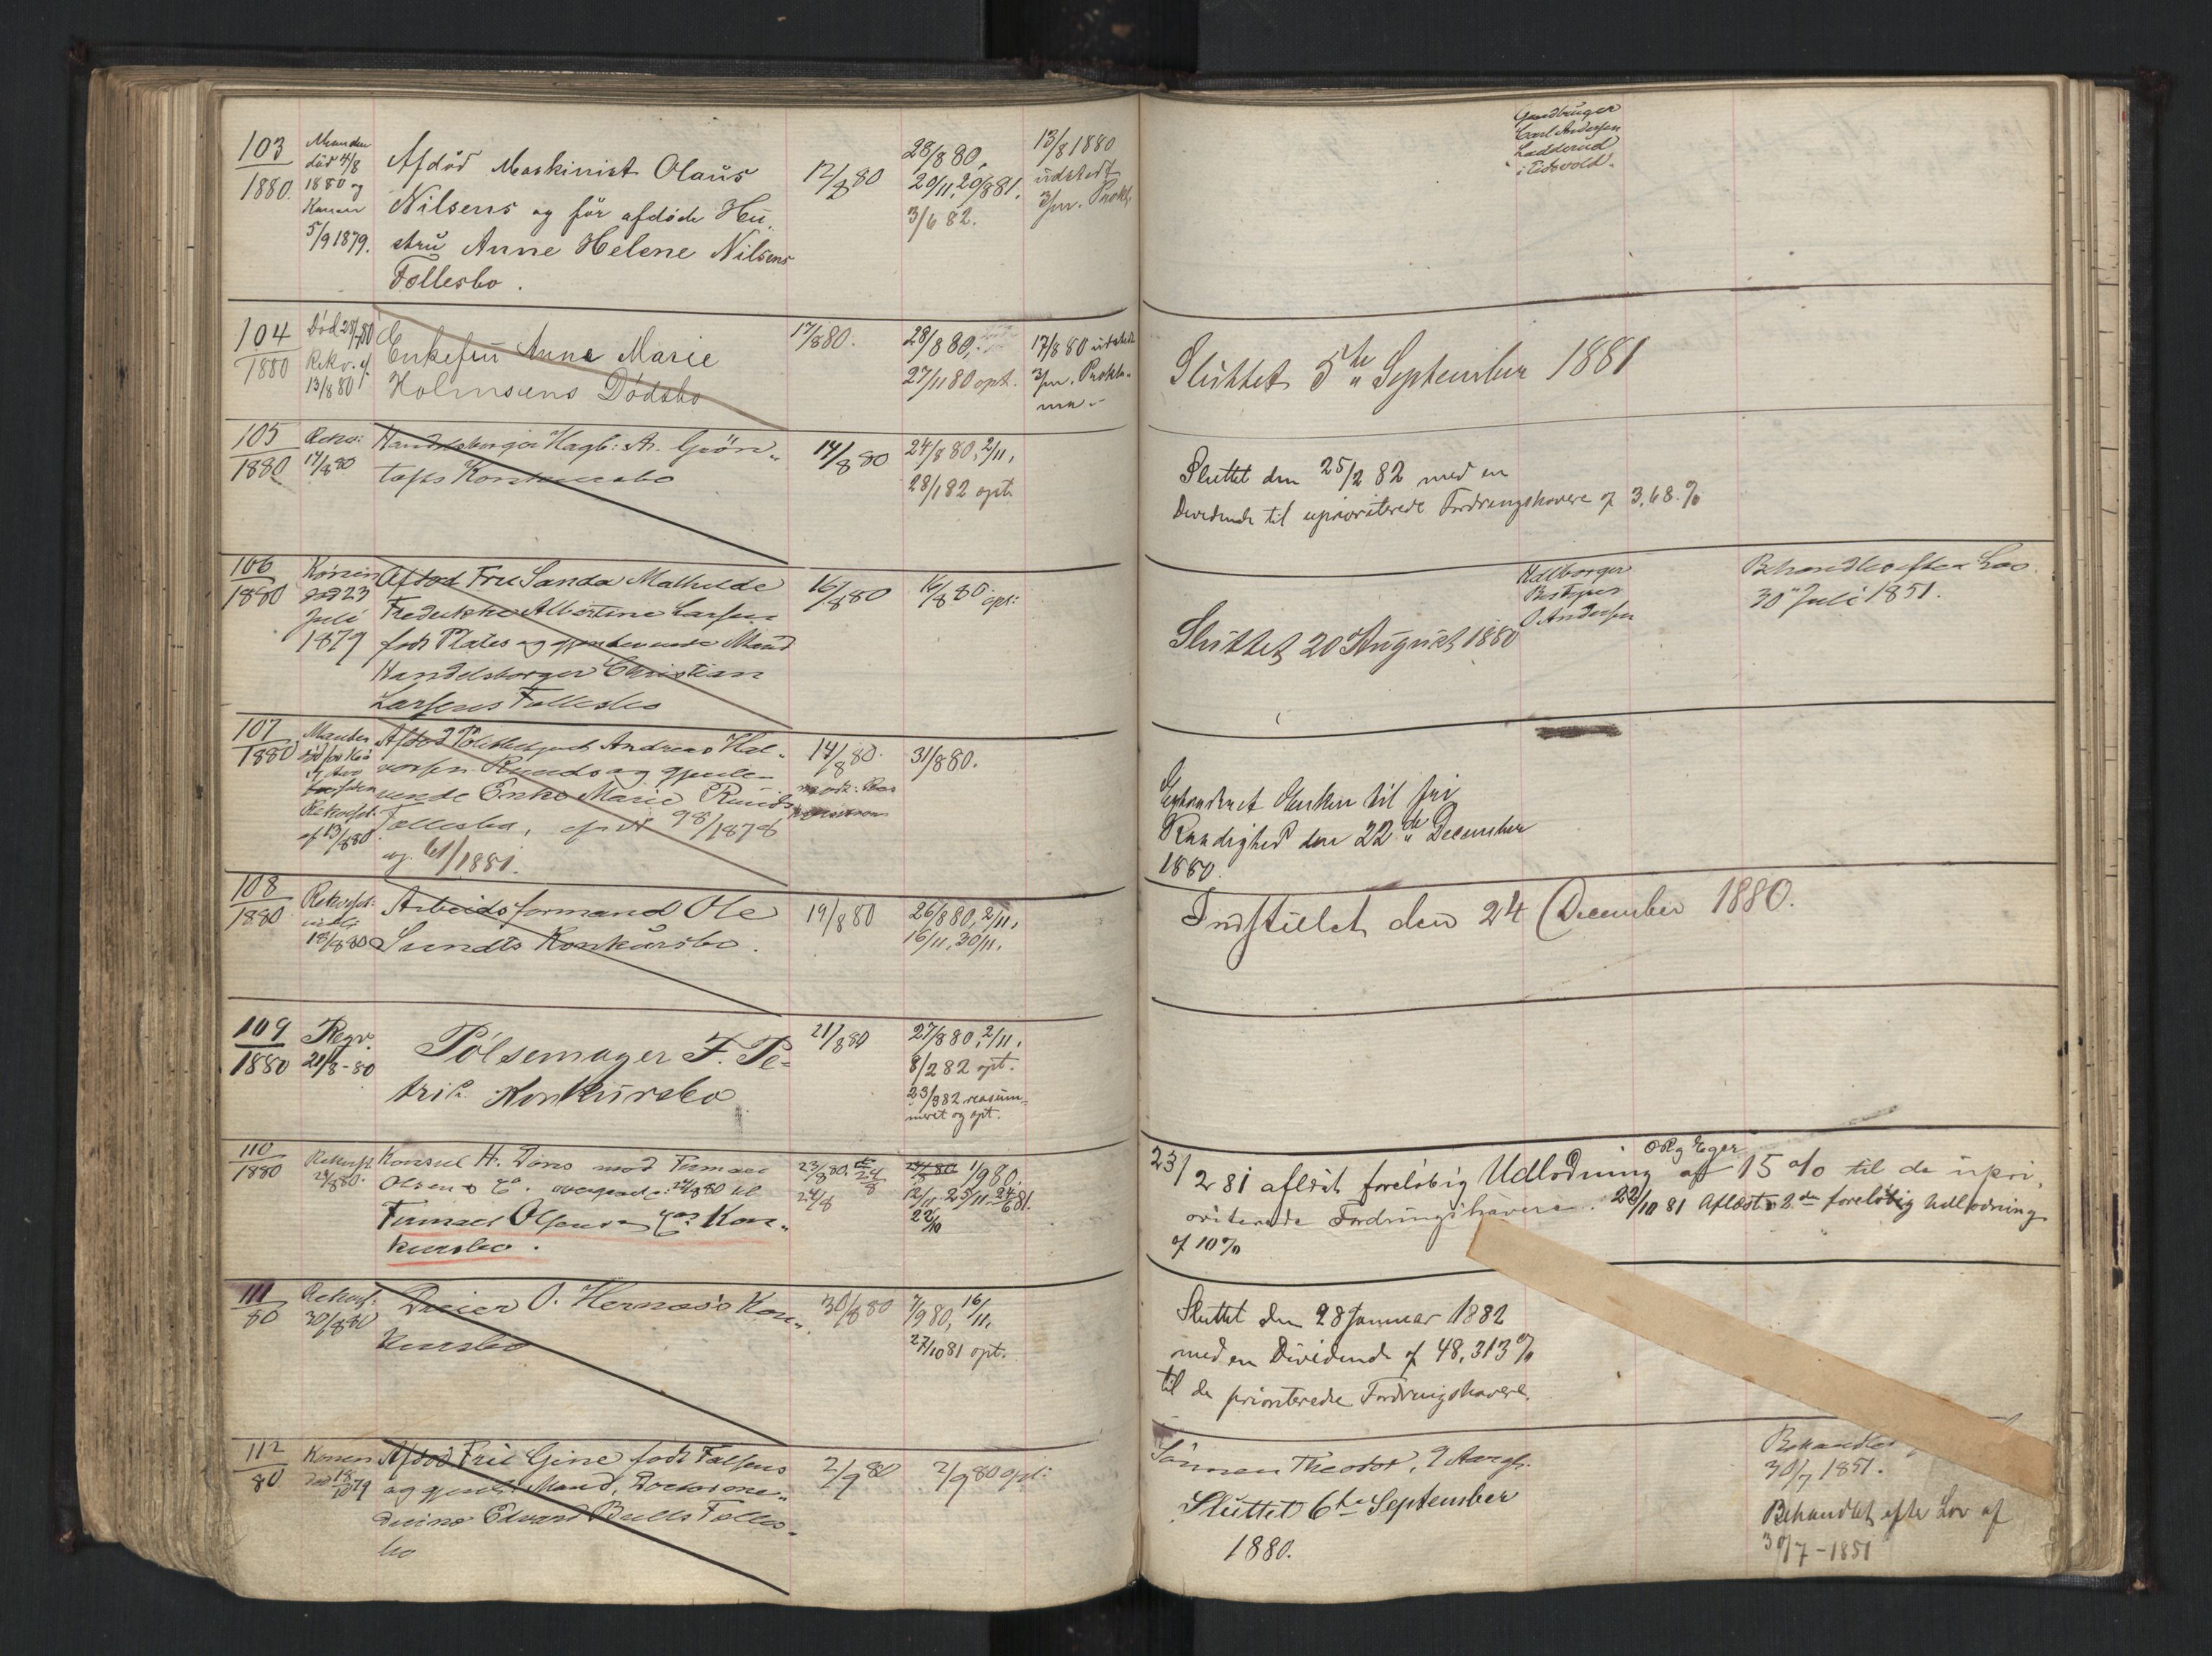 103
1880.
Manden
død 4/8
1880 og
Konen
5/9 1879.
Afdød Maskinist Olaus
Nilsens og før afdøde Hu-
stru Anne Helene Nilsens
Fællesbo.
12/8 80
28/8 80,
20/11, 20/8 81.
3/6 82.
13/8 1880
udstedt
3/m. Prokl.
Gaardbruger
Carl Andersen
Ladderud
i Eidsvold.
104
1880
Død 28/7 80
Rekv. af
13/8 80
Enkefru Anne Marie
Holmsens Dødsbo
17/8 80.
28/8 80,
27/11 80 opt.
17/8 80 udstedt
3/m. Prokla-
ma.
Sluttet 5te September 1881
105
1880
Rekv:
14/8 80
Handelsborger Hagb: A. Grön-
tofts Konkursbo
14/8 80
24/8 80, 2/11,
28/1 82 opt.
Sluttet den 25/2 82 med en
Dividende til uprioriterede Fordringshavere af 3,68 %
106
1880
Konen
død 23
Juli
1879
Afdød Fru Sanda Mathilde
Fredrikke Albertine Larsen
født Plates og gjenlevende Mand
Handelsborger Christian
Larsens Fællesbo
16/8 80
16/8 80 opt:
Sluttet 20 August 1880
O Andersen
Behandles efter Lov
30te Juli 1851.
107
1880
Manden
Rekvisit.
af 13/8 80
Afdød Politibetjent Andreas Hal-
vorsen Ruuds og gjenle-
vende Enke Marie Ruuds
Fællesbo, cfr. No 98/1878
og 61/1881.
14/8 80.
31/8 80.
Extraderet Enken til fri
Raadighed den 22de December
1880.
108
1880
Rekvisit:
18/8 80
Arbeidsformand Ole
Sundts Konkursbo.
19/8 80
26/8 80, 2/11,
16/11, 30/11.
Indstillet den 24 December 1880.
109
1880
Reqv.
21/8 - 80
Pølsemager F. Pe-
tris Konkursbo
21/8 80
27/8 80, 2/11,
8/2 82 opt.
23/9 82 reasum-
meret og opt.
110
1880
Rekvisit.
23/8 80.
Konsul H. Döns mod Firmaet
Olsen & Co. overgaaet: 24/8 80 til
Firmaet Olsen & Cos Kon-
kursbo.
23/8 80.
24/8
1/9 80.
12/11 25/11 24/6 81.
22/10
23/2 81 aflagt foreløbig Udlodning af 15 % til de upri-
oriterede Fordringshavere. 22/10 81 Aflagt 2den foreløbig Udlodning
af 10 %
111
80
Rekvis:
30/8 80
Dreier O. Hernæs's Kon-
kursbo
30/8 80
7/9 80, 16/11,
27/10 81 opt.
Sluttet den 28 Januar 1882
med en Dividende af 48,313 %
til de prioriterede Fordringshavere.
112
80
Konen
død 18/10 79
Afdød Fru Gine født Falsens
og gjenl: Mand, Doctor me-
dicinæ Edvard Bulls Fælles-
bo
2/9 80
2/9 80 opt:
Sønnen Theodor, 9 Aar gl.
Sluttet 6te September
1880.
30/7 1851.
Behandlet efter Lov af
30/7 - 1851